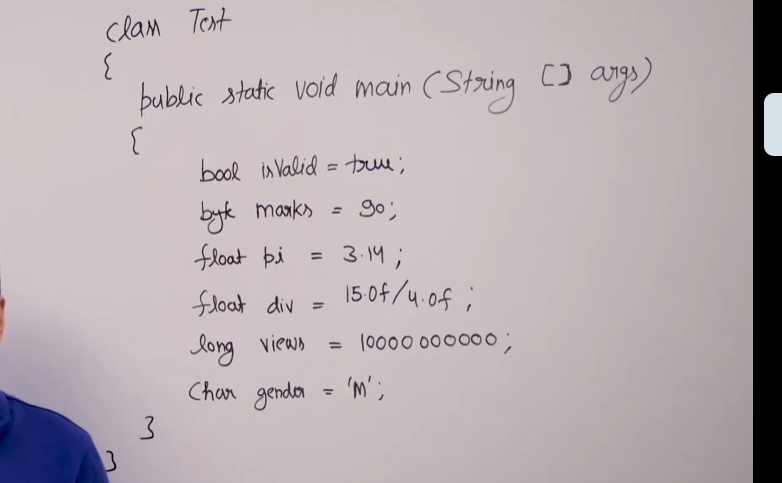 class Test
{
public static void main (String [] args)
{
bool isValid = true;
byte marks = 90;
float pi = 3.14;
float div = 15.0f/4.0f;
long views = 10000000000;
Char gender = 'M';
}
}